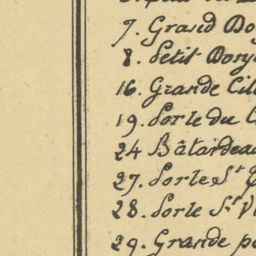 7. Grand
8. Petit
16. Grande
19. Porte du
24 Bâtardeau
27. Porte St
28. Porte St. V
29. Grande